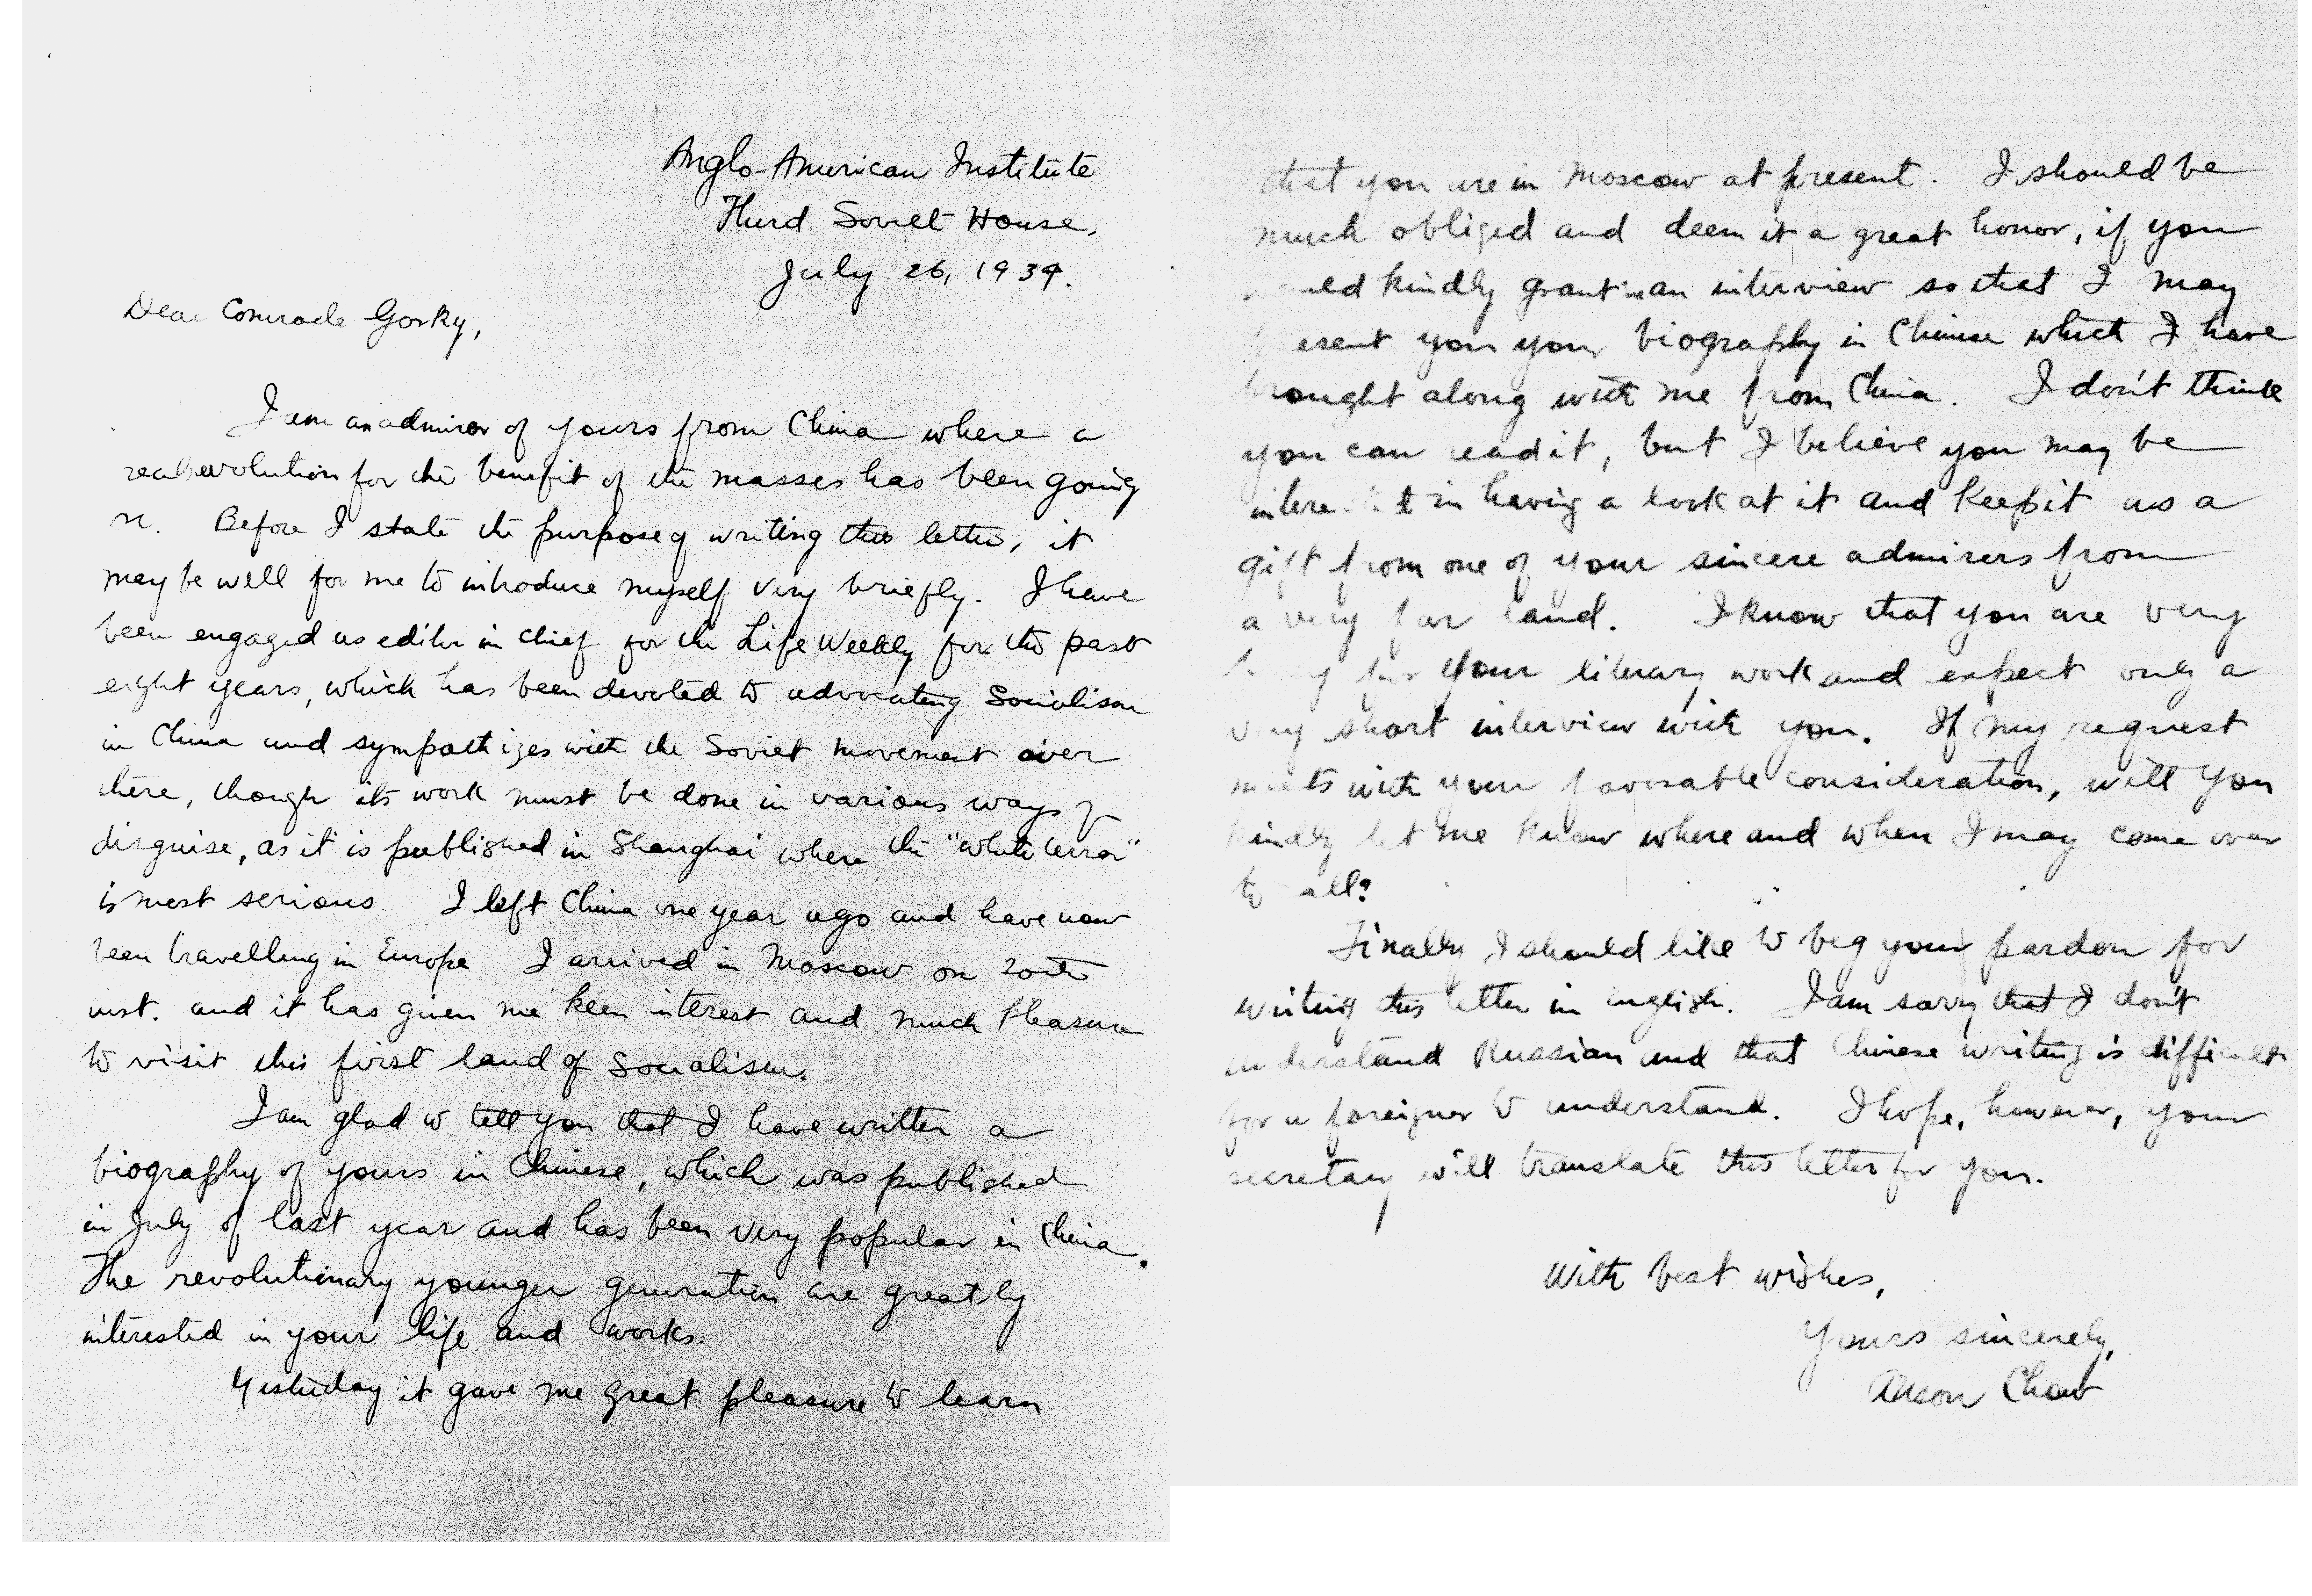 Anglo-American Institute
Third Soviet House.
July 26, 1934.
Dear Comrade Gorky,
I am an admiror of yours from China where a
real revolution for the benefit of the masses has been going
Before I state the purpose of writing this letter, it
may be well for me to introduce myself very briefly. I have
been engaged as editor in chief for the Life Weekly for the past
eight years, which has been devoted to advocating Socialism
in China and sympathizes with the Soviet movement over
there, though its work must be done in various ways of
disguise, as it is published in Shanghai where the "white terror"
is most serious. I left China one year ago and have now
been travelling in Europe I arrived in Moscow on 20th
inst. and it has given me keen interest and much pleasure
to visit this first land of Socialism.
I am glad to tell you that I have written a
biography of yours in Chinese, which was published
in July of last year and has been very popular in China.
The revolutionary younger generation are greatly
interested in your life and works.
Yesterday it gave me great pleasure to learn
that you are in Moscow at present. I should be
much obliged and deem it a great honor, if you
kindly grant me an interview so that I may
present you your biography in Chinese which I have
brought along with me from China. I don't think
you can read it, but I believe you may be
in having a look at it and keep it as a
gift from one of your sincere admirers from
a very far land. I know that you are very
for your literary work and expect only a
very short interview with you. If my request
meets with your favorable consideration, will you
kindly let me know where and when I may come over
to all?
Finally, I should like to beg your pardon for
writing this letter in English. I am sorry that I don't
understand Russian and that Chinese writing is difficult
for a foreigner to understand. I hope, however, your
secretary will translate this letter for you.
With best wishes,
Yours sincerely,
Chow